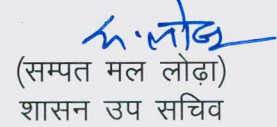 म. लोढ़ा
(सम्पत मल लोढ़ा)
शासन उप सचिव